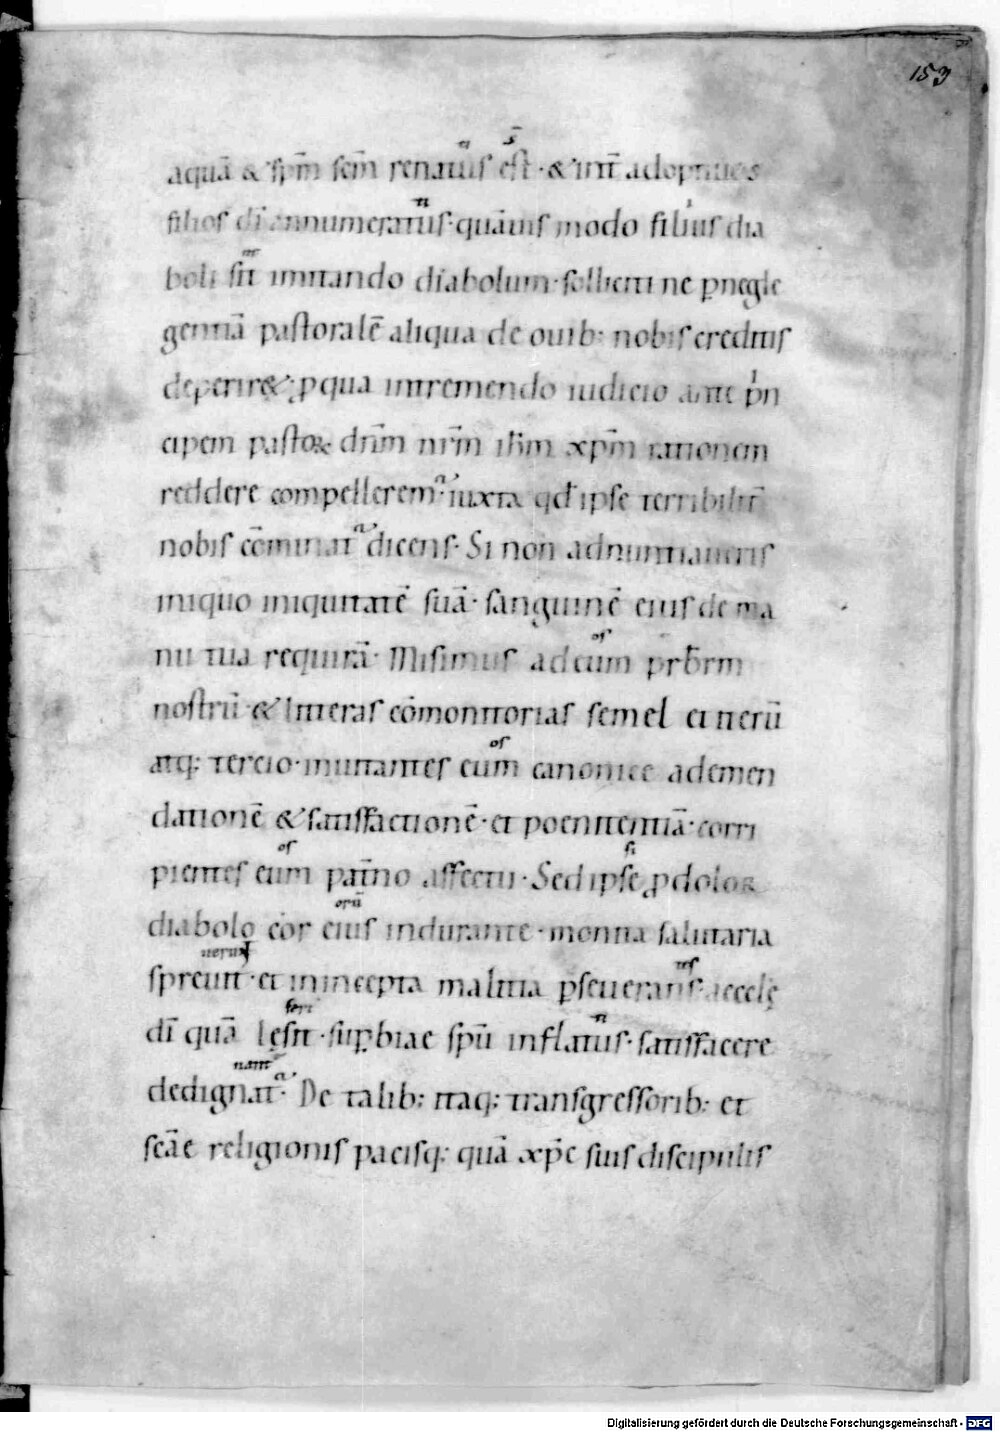 153
aquā & sp̄m sc̄m renatus est · & int̄ adoptiuos
filios dī annumeratus · quāuis modo filius dia
boli sit imitando diabolum · solliciti ne p̱negle
gentiā pastoralē aliqua de ouib: nobis creditis
deperiret · ꝓ qua in tremendo iudicio ante prin
cipem pastoꝝ dn̄m nr̄m ihm̄ xp̄m rationem
reddere compelleremur · iuxta qd̄ ipse terribilit̄
nobis cōminatur dicens · Si non adnuntiaueris
iniquo iniquitatē suā · sanguinē eius de ma
nu tua requirā · Misimus ad eum pr̄b̄rm
nostrū · & litteras cōmonitorias semel et iterū
atq: tercio · inuitantes eum canonice ad emen
dationē & satisfactionē · et poenitentiā · corri
pientes eum pat̄no affectu · Sed ipse ꝓ doloꝝ
diabolo cor eius indurante · monita salutaria
spreuit · et in incepta malitia p̱seuerans · aecclę
dī quā lęsit · sup̱biae sp̄u inflatus · satisfacere
dedignatur · De talib: itaq: transgressorib: et
scāe religionis pacisq: quā xp̄c suis discipulis
Digitalisierung gefördert durch die Deutsche Forschungsgemeinschaft - DFG